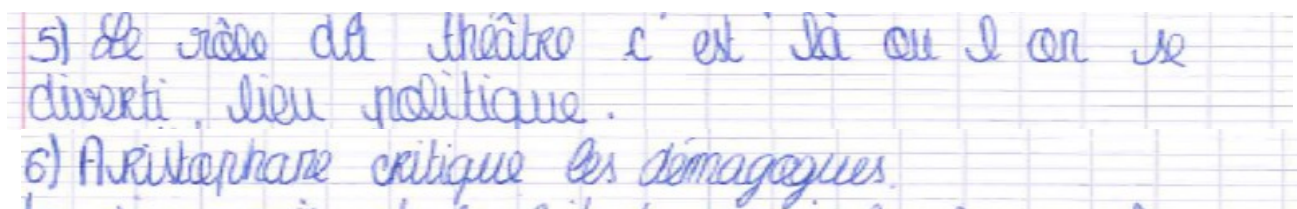 5) Le rôle du théâtre c'est là ou l on se
diverti, lieu politique.
6) Aristophane critique les démagogues.